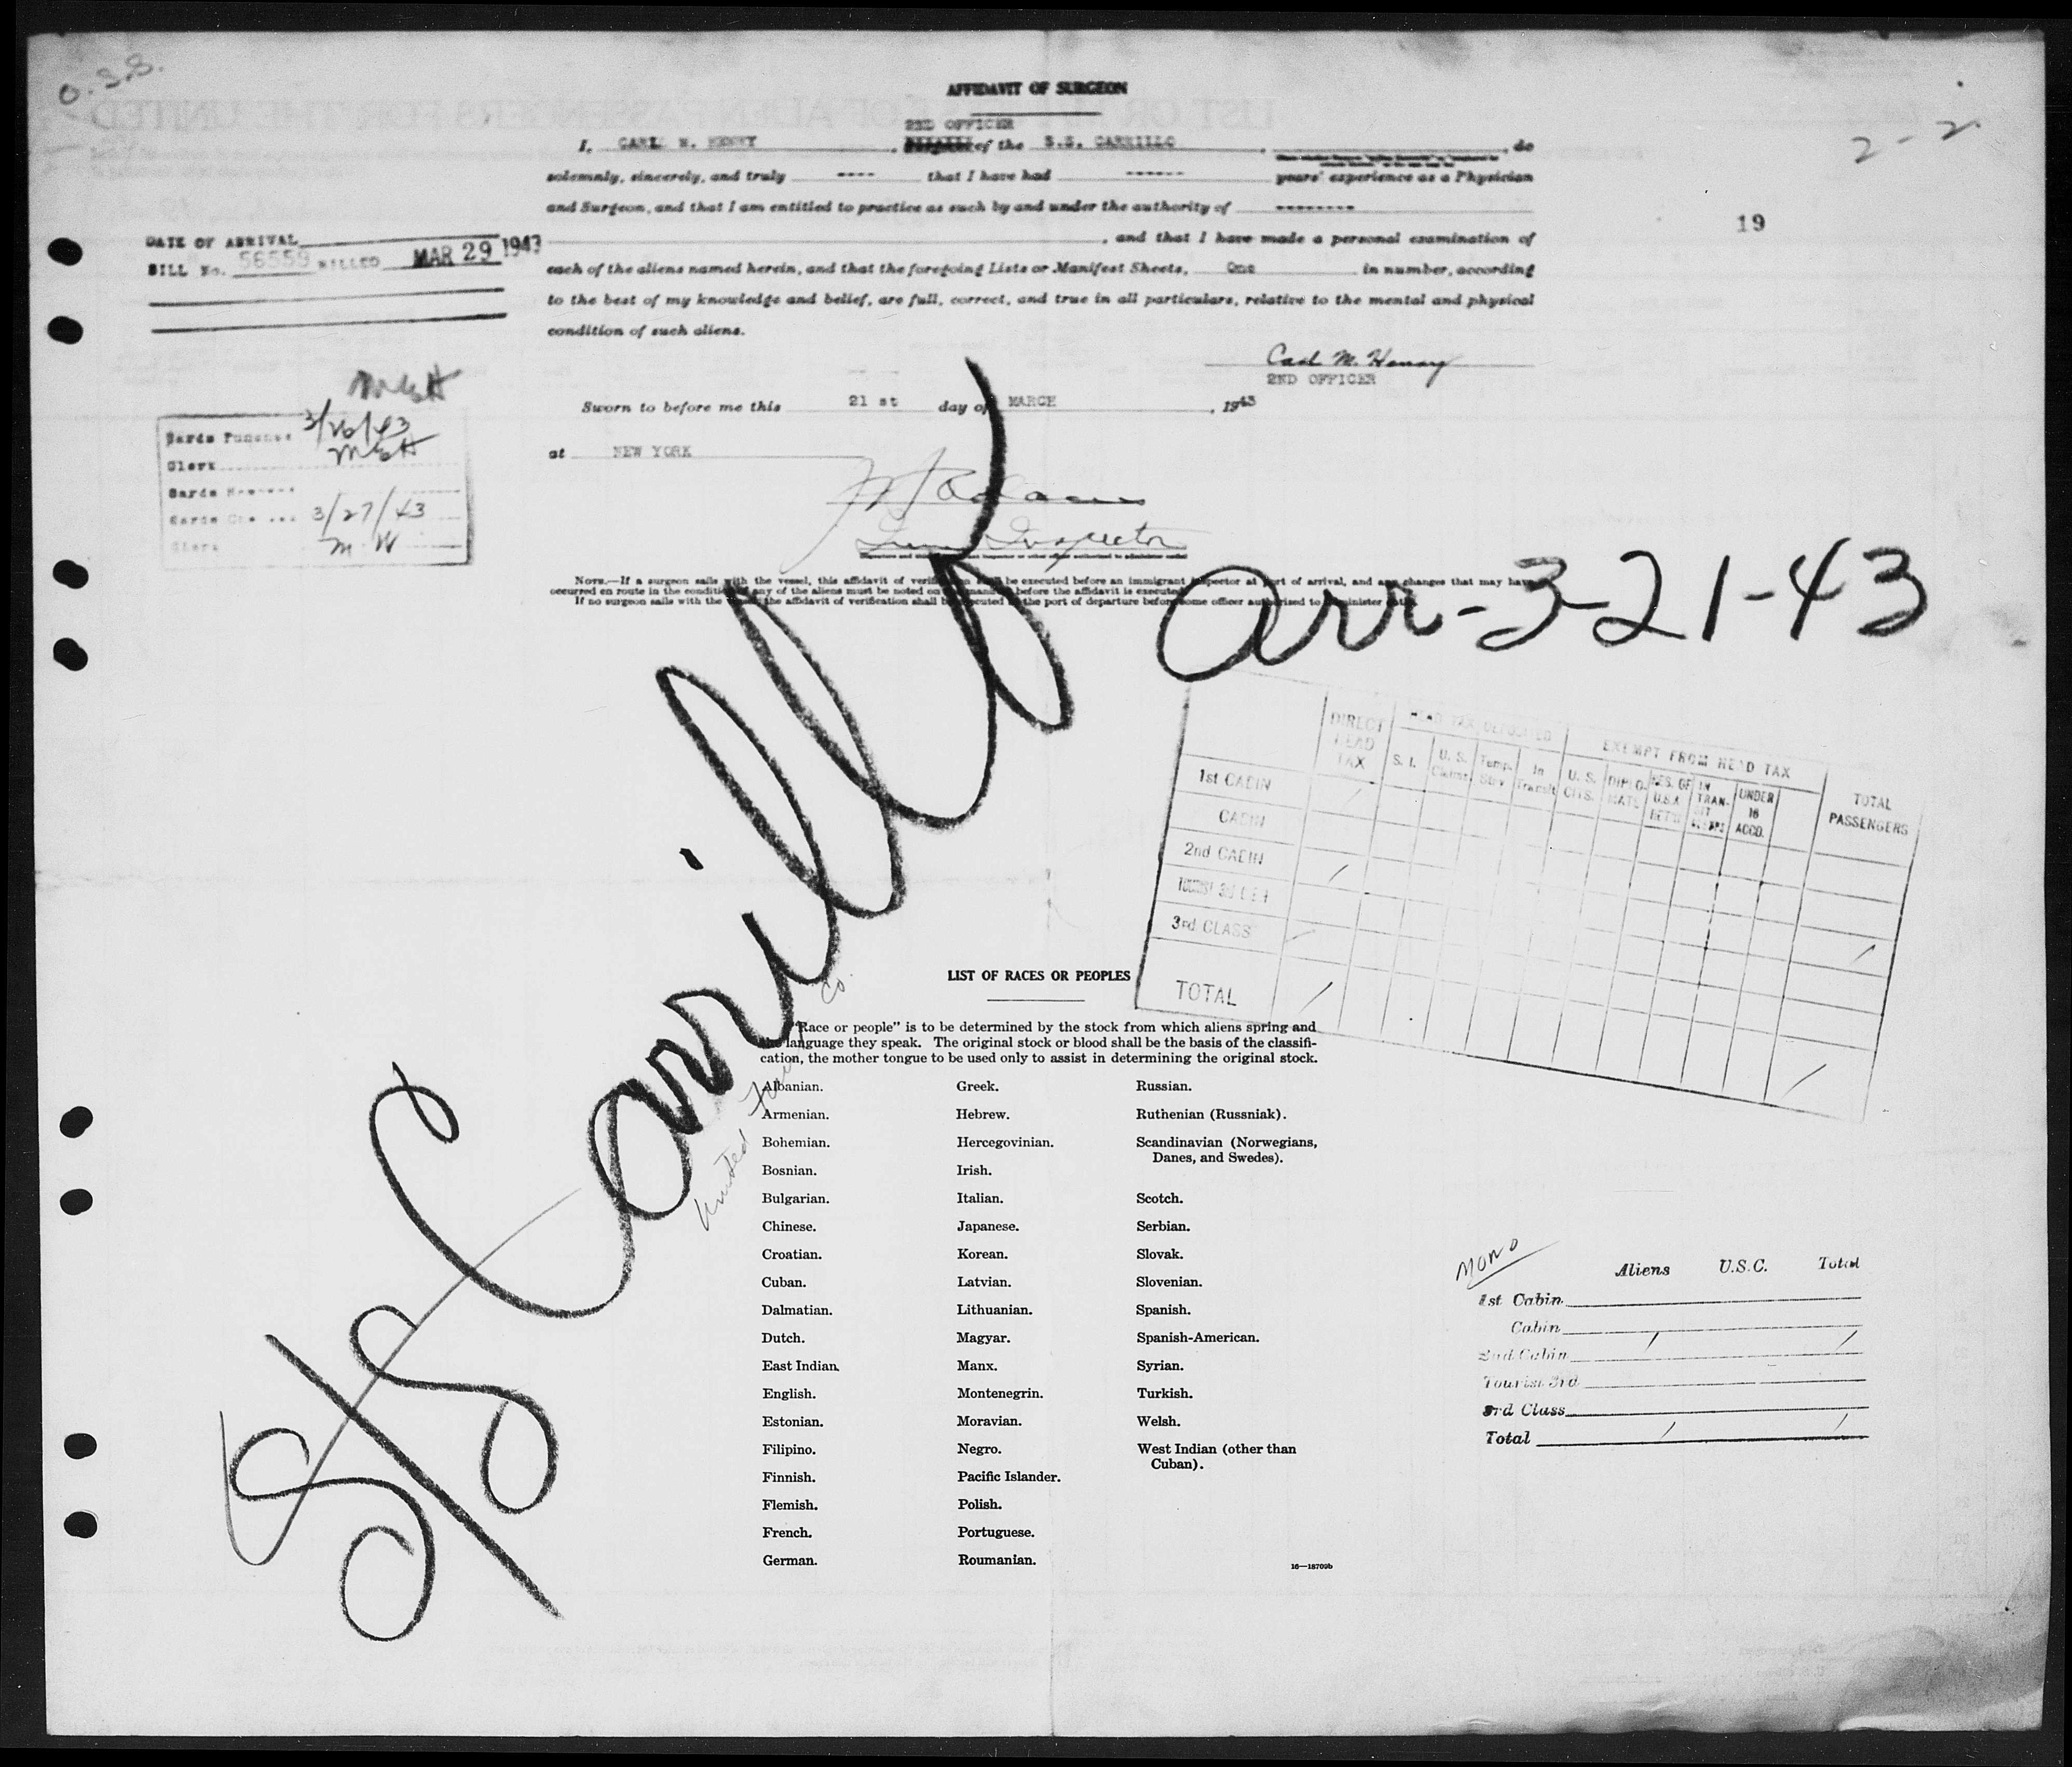 O.S.S.
AFFIDAVIT OF SURGEON
2-2
2ND OFFICER
I, CARL M. HENRY, of the S.S. CARRILLO, do
solemnly, sincerely, and truly ---- that I have had ------ years' experience as a Physician
and Surgeon, and that I am entitled to practice as such by and under the authority of --------
, and that I have made a personal examination of
19
DATE OF ARRIVAL
BILL No. 56559 BILLED MAR 29 1943
each of the aliens named herein, and that the foregoing Lists or Manifest Sheets, One in number, according
to the best of my knowledge and belief, are full, correct, and true in all particulars, relative to the mental and physical
condition of such aliens.
Carl M. Henry
2ND OFFICER
Sworn to before me this 21 st day of MARCH, 1943
at NEW YORK
MEH
Cards Punched 3/26/43
Clerk MEH
Cards
Cards 3/27/43
Clerk M W
Inspector
NOTE.—If a surgeon sails with the vessel, this affidavit of verification shall be executed before an immigrant inspector at port of arrival, and any changes that may have
occurred en route in the condition of any of the aliens must be noted on the manifest before the affidavit is executed.
If no surgeon sails with the vessel, the affidavit of verification shall be executed at the port of departure before some officer authorized to administer oaths.
arr-3-21-43
S/S Carrillo
United Fruit Co.
DIRECT HEAD TAX
HEAD TAX DEPOSITED
EXEMPT FROM HEAD TAX
S. I.
U. S. Claims
Temp. Stay
In Transit
U. S. CITS.
DIPLO-MATS
RES. OF U.S.A. RET'G
IN TRAN-SIT
UNDER 16 ACCD.
TOTAL PASSENGERS
1st CABIN
CABIN
2nd CABIN /
TOURIST 3rd
3rd CLASS
TOTAL /
LIST OF RACES OR PEOPLES
"Race or people" is to be determined by the stock from which aliens spring and
the language they speak. The original stock or blood shall be the basis of the classifi-
cation, the mother tongue to be used only to assist in determining the original stock.
Albanian.
Armenian.
Bohemian.
Bosnian.
Bulgarian.
Chinese.
Croatian.
Cuban.
Dalmatian.
Dutch.
East Indian.
English.
Estonian.
Filipino.
Finnish.
Flemish.
French.
German.
Greek.
Hebrew.
Hercegovinian.
Irish.
Italian.
Japanese.
Korean.
Latvian.
Lithuanian.
Magyar.
Manx.
Montenegrin.
Moravian.
Negro.
Pacific Islander.
Polish.
Portuguese.
Roumanian.
Russian.
Ruthenian (Russniak).
Scandinavian (Norwegians,
Danes, and Swedes).
Scotch.
Serbian.
Slovak.
Slovenian.
Spanish.
Spanish-American.
Syrian.
Turkish.
Welsh.
West Indian (other than
Cuban).
16—18709b
MONO
Aliens U.S.C. Total
1st Cabin
Cabin
2nd Cabin / /
Tourist 3rd
3rd Class
Total / /